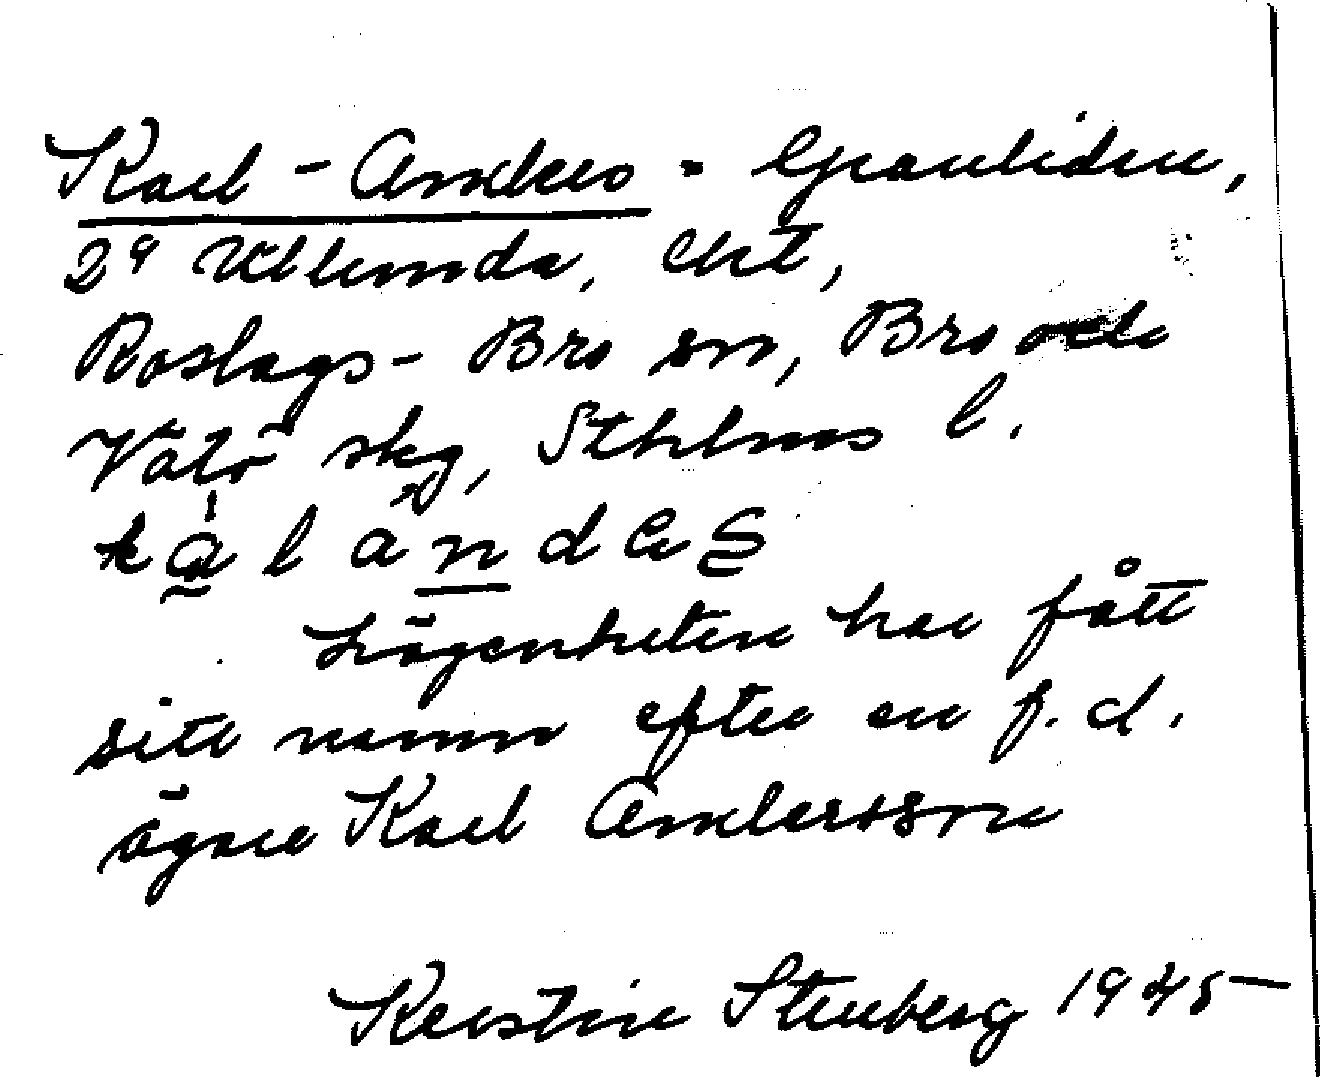 Karl-Anders = Granliden,
2⁹ Ullunda, cht,
Roslags-Bro sn, Bro och
Vätö skg, Sthlms l.
kalandes
Lägenheten har fått
sitt namn efter en f.d.
ägare Karl Andersson
Kerstin Stenberg 1945